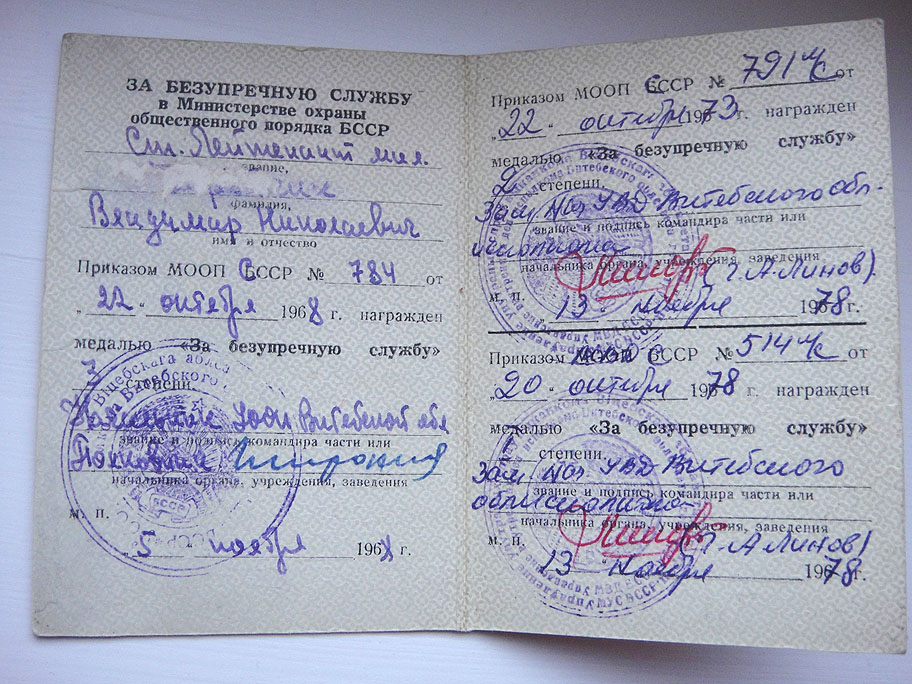 ЗА БЕЗУПРЕЧНУЮ СЛУЖБУ
в Министерстве охраны
общественного порядка БССР
Ст. Лейтенант мил.
звание,
фамилия,
Владимир Николаевич
имя и отчество
Приказом МООП БССР № 784 от
„22“ октября 1968 г. награжден
медалью «За безупречную службу»
3 степени.
Витебской обл
звание и подпись командира части или
Полковник
начальника органа, учреждения, заведения
М. П.
„5 ноября 1968 г.
Приказом МООП БССР № 791 л/с от
„22“ октября 1973 г. награжден
медалью «За безупречную службу»
2 степени.
Зам. Нач. УВД Витебского обл-
звание и подпись командира части или
исполкома
начальника органа, учреждения, заведения
(Г. А. Линов).
М. П.
13 ноября 1978 г.
Приказом МООП БССР № 514 л/с от
„20“ октября 1978 г. награжден
медалью «За безупречную службу»
1 степени.
Зам. Нач. УВД Витебского
звание и подпись командира части или
облисполкома
начальника органа, учреждения, заведения
(Г. А. Линов)
М. П.
13 ноября 1978 г.